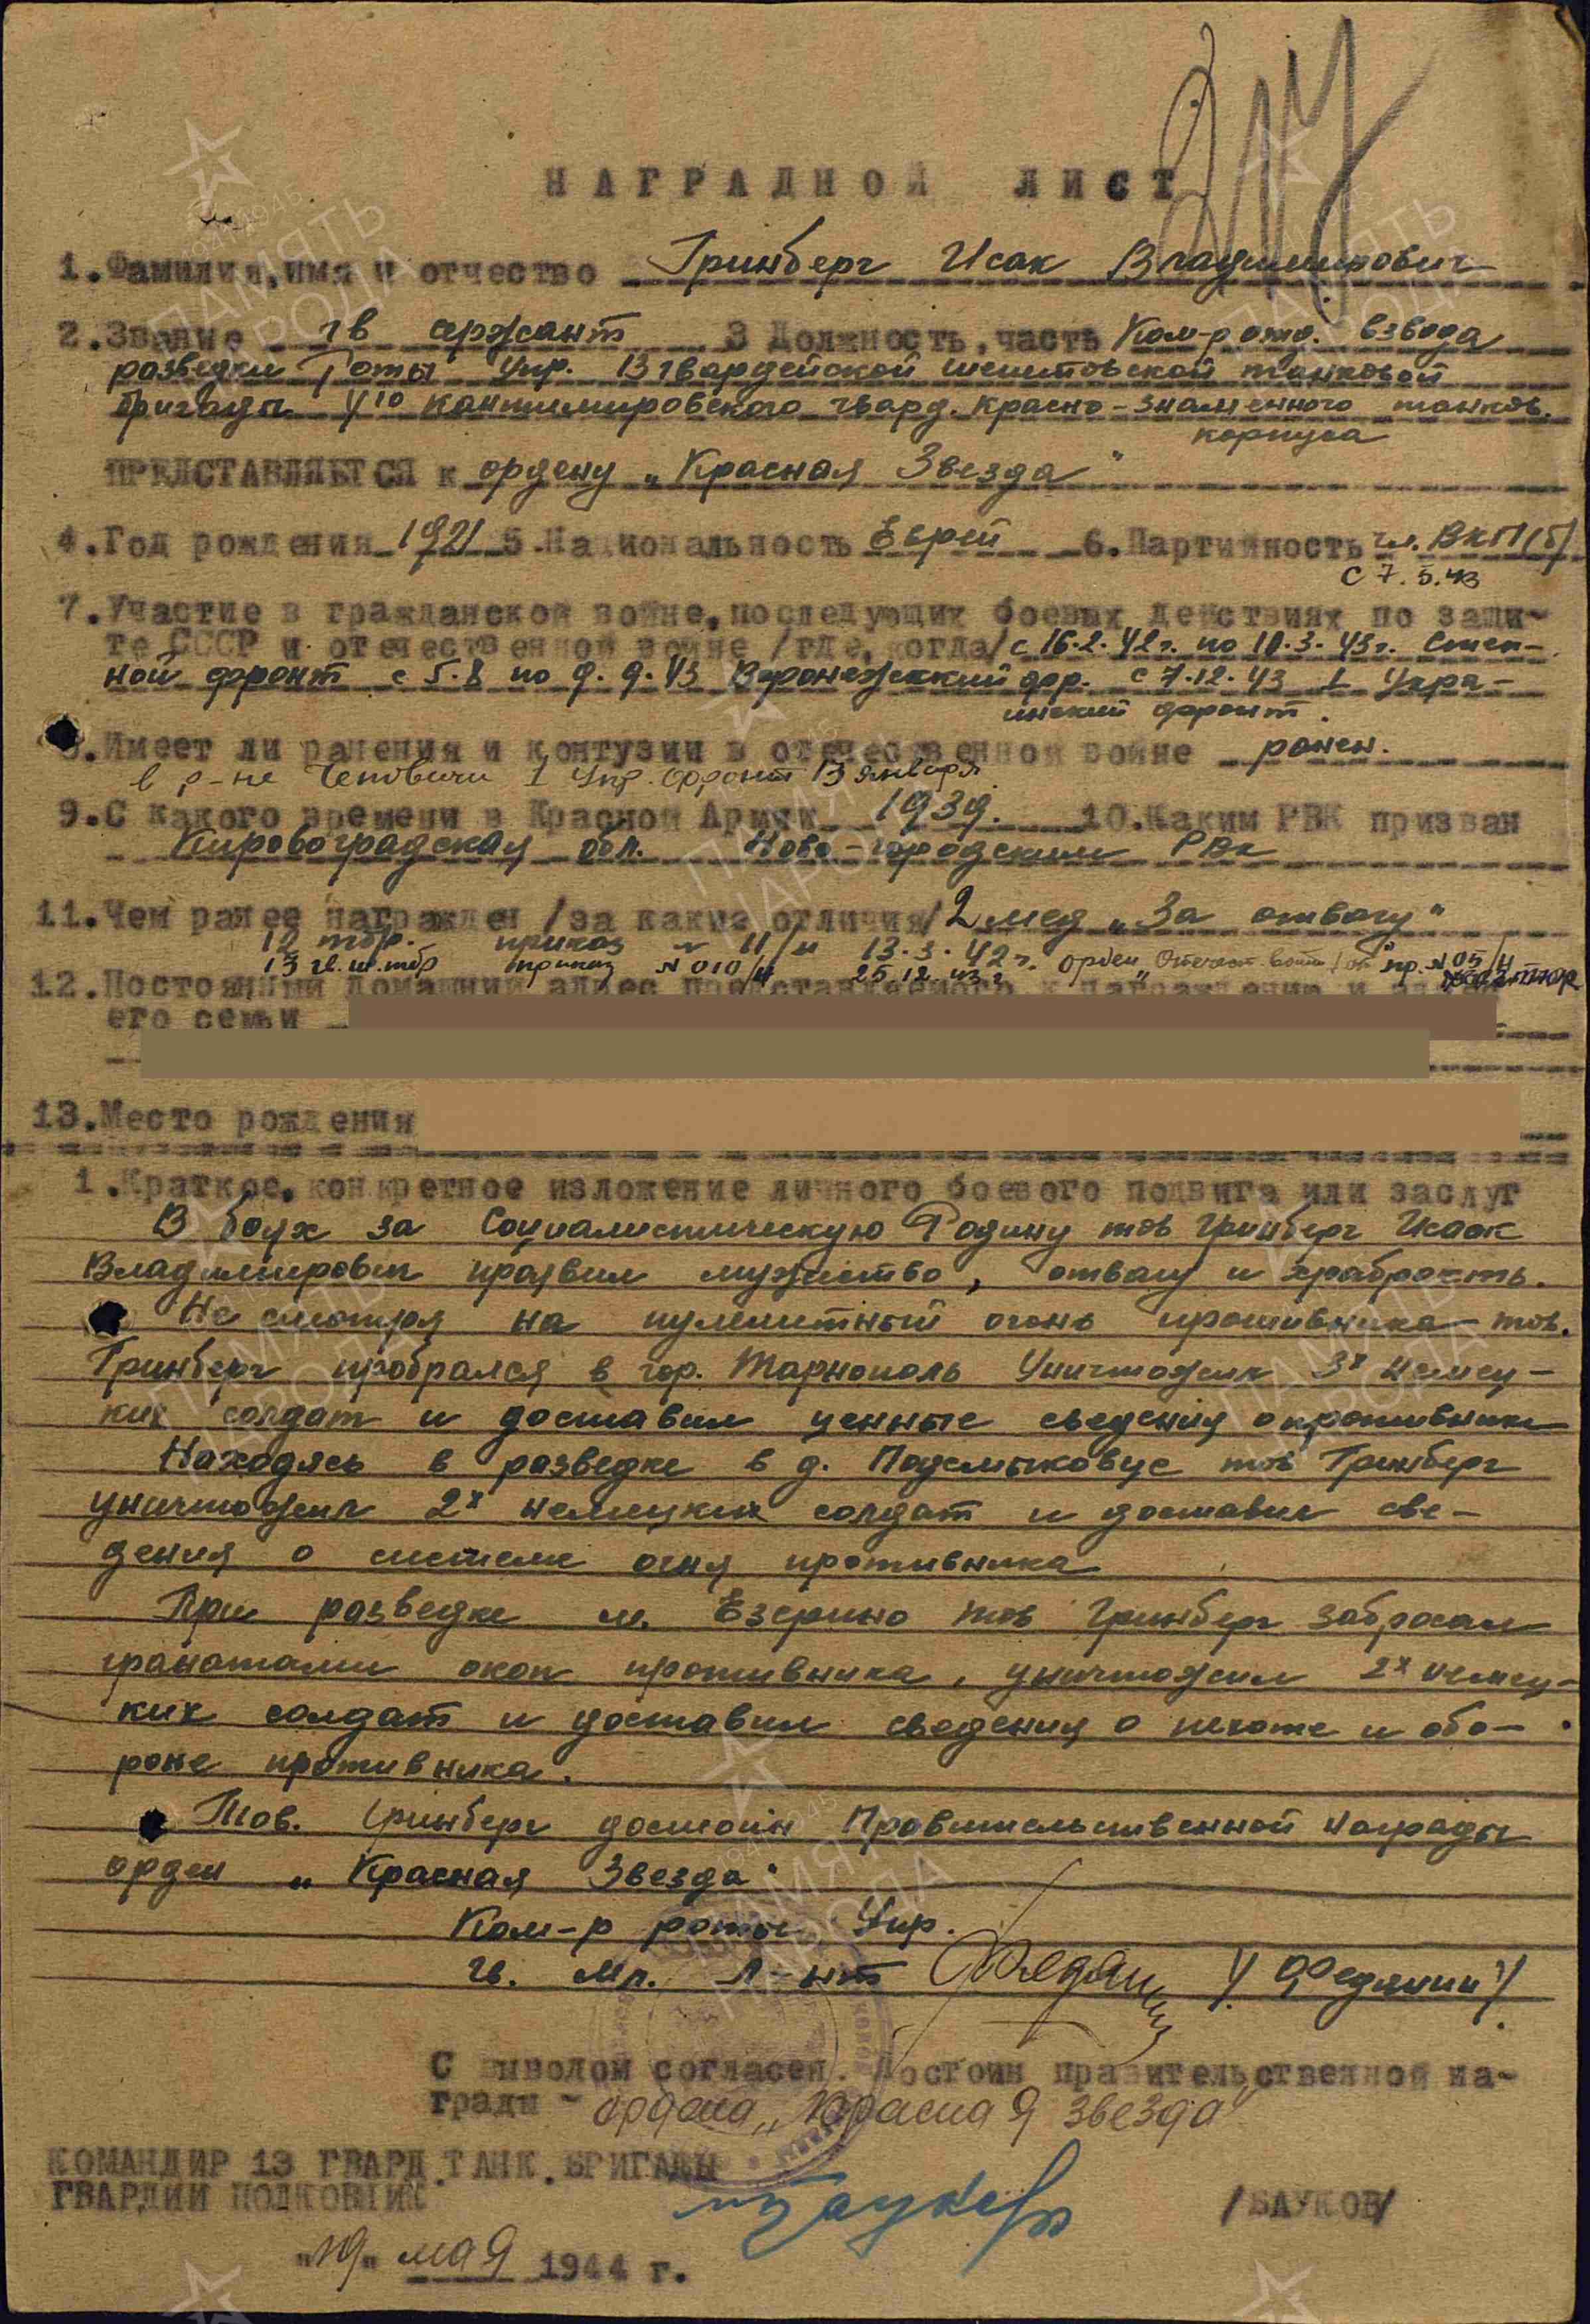 НАГРАДНОЙ ЛИСТ
1.Фамилия,имя и отчество Гринберг Исак Владимирович
2.Звание гв сержант 3 Должность,часть Ком-р отд. взвода
разведки Роты Упр. 13 гвардейской шепетовской танковой
бригады 4го кантемировского гвард. Красно-знаменного танков.
корпуса
ПРЕДСТАВЛЯЕТСЯ к ордену „Красная Звезда"
4.Год рождения 1921 5.Национальность Еврей 6.Партийность чл. ВКП(б)
с 7.5.43
7.Участие в гражданской войне,последующих боевых действиях по защи-
те СССР и отечественной войне /где,когда/ с 16.2.42г. по 10.3.43г. Степ-
ной фронт с 5.8 по 9.9.43 Воронежский фр. с 7.12.43 1 Укра-
инский фронт.
8.Имеет ли ранения и контузии в отечественной войне ранен.
в р-не Чеповичи 1 Укр. фронт 13 января
9.С какого времени в Красной Армии 1939. 10.Каким РВК призван
Кировоградская обл. Ново-городским РВК
11.Чем ранее награжден /за какие отличия/ 2 мед „За отвагу"
12 тбр. приказ № 11/н 13.3.42г. орден Отечест. войны пр. №05/н
13 гв. тбр приказ №010/н 25.12.43г.
12.Постоянный домашний адрес представляемого к награждению и адрес
его семьи
13.Место рождения
1.Краткое,конкретное изложение личного боевого подвига или заслуг
В боях за Социалистическую Родину тов Гринберг Исаак
Владимирович проявил мужество, отвагу и храбрость.
Не смотря на пулеметный огонь противника тов.
Гринберг пробрался в гор. Тарнополь Уничтожил 3х немец-
ких солдат и доставил ценные сведения о противнике
Находясь в разведке в д. тов Гринберг
уничтожил 2х немецких солдат и доставил све-
дения о системе огня противника
При разведке м. Езерно тов Гринберг забросал
гранатами окоп противника, уничтожил 2х немец-
ких солдат и доставил сведения о пехоте и обо-
роне противника.
Тов. Гринберг достоин Правительственной награды
орден „Красная Звезда"
Ком-р роты Упр.
гв. мл. л-нт Федянин /Федянин/.
С выводом согласен. Достоин правительственной на-
грады - ордена „Красная звезда"
КОМАНДИР 13 ГВАРД.ТАНК.БРИГАДЫ
ГВАРДИИ ПОЛКОВНИК Бауков /БАУКОВ/
"19" мая 1944 г.